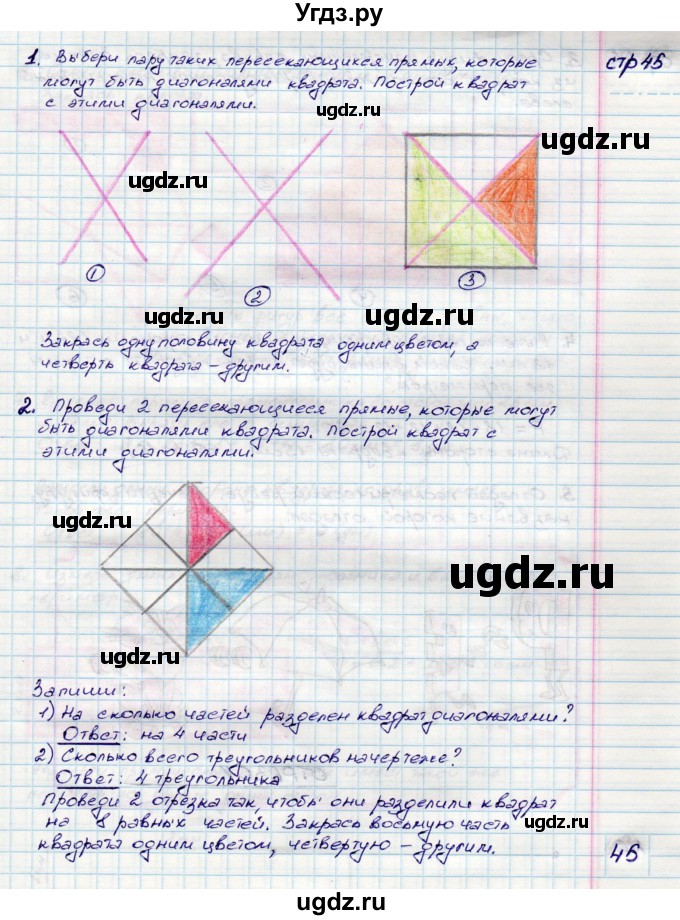 Угдз.ру
стр 45
1. Выбери пару таких пересекающихся прямык, которые
могут быть диагоналями квадрата. Построй квадрат
с этими диагоналями.
ugdz.ru
ugdz.ru
ugdz.ru
1
2
3
ugdz.ru
Закрась одну половину квадрата одним цветом, а
четверть квадрата – другим.
2. Проведи 2 пересекающиеся прямые, которые могут
быть диагоналями квадрата. Построй квадрат с
этими диагоналями.
ugdz.ru
ugdz.ru
ugdz.ru
Запиши:
1) На сколько частей разделен квадрат диагоналями?
Ответ: на 4 части
2) Сколько всего треугольников на чертеже?
Ответ: 4 треугольника
Проведи 2 отрезка так, чтобы они разделили квадрат
на 8 равных частей. Закрась восьмую часть
ugdz.ru
квадрата одним цветом, четвертую – другим.
45